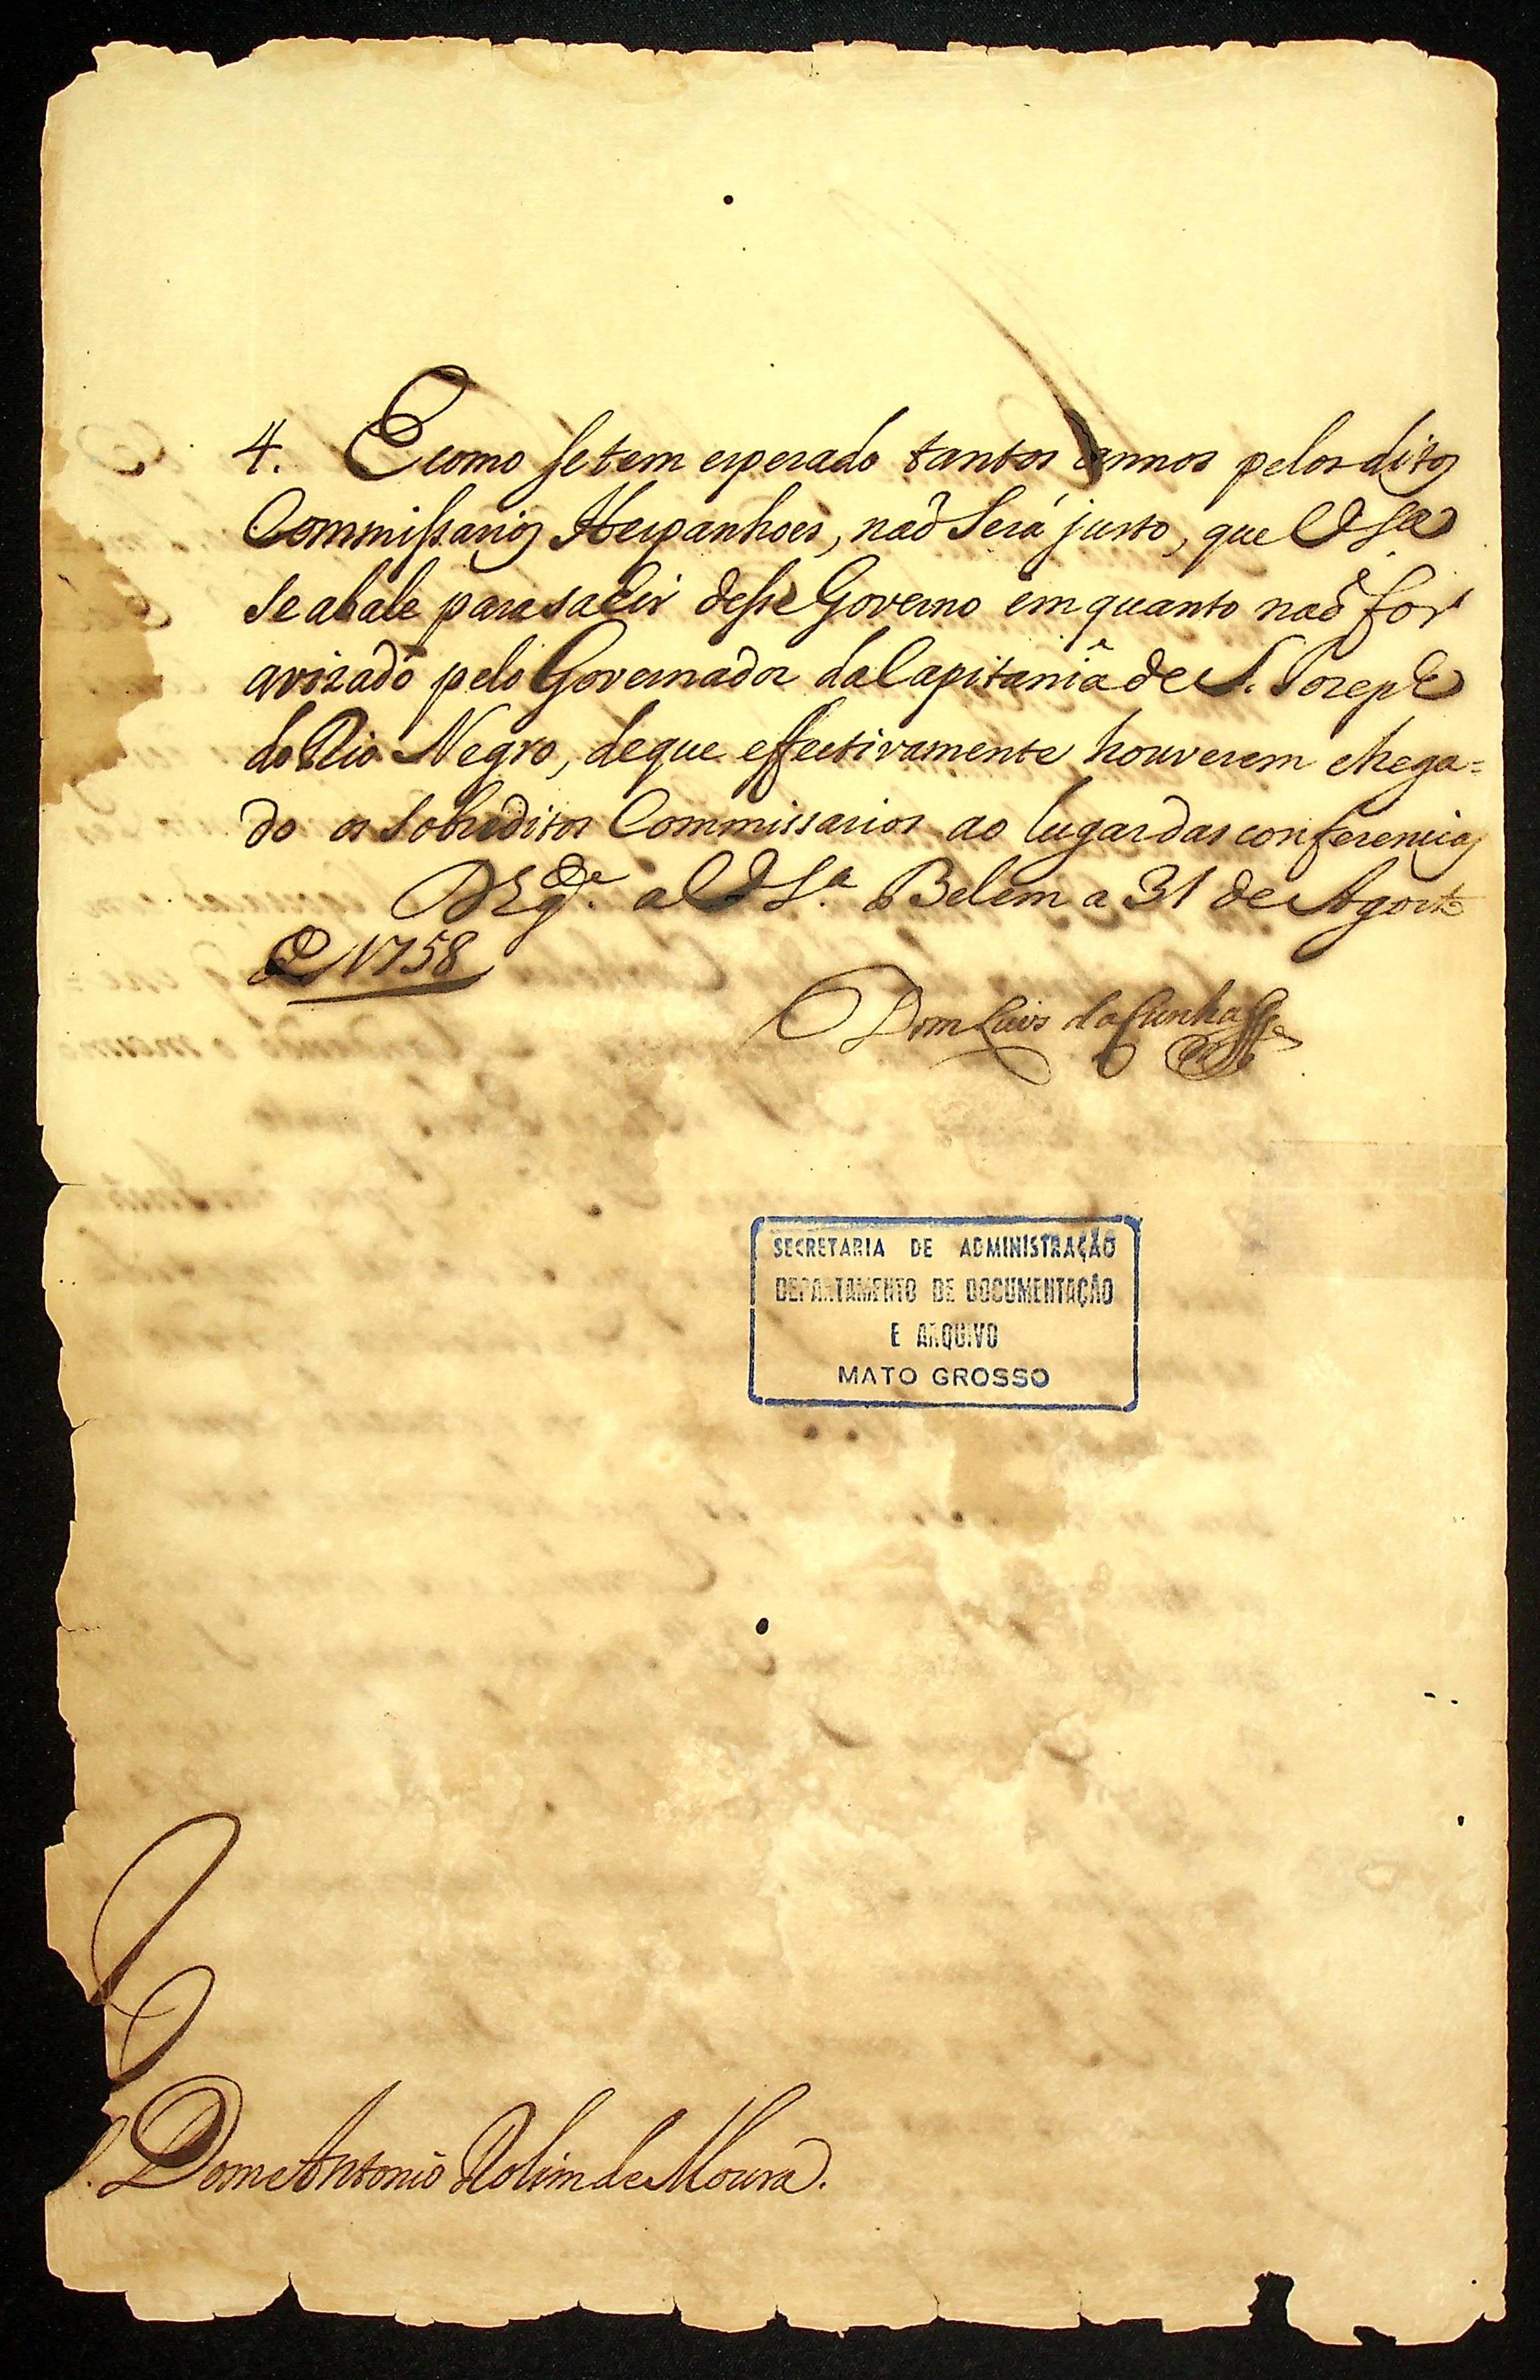 4. E como se tem esperado tantos annos pelos ditos
Commissarios Hespanhoes, naõ será justo, que V S.ª
se abale para sahir desse Governo em quanto naõ for
avizado pelo Governador da Capitania de S. Joseph
do Rio Negro, de que effectivamente houverem chega=
do os sobreditos Commissarios ao lugar das conferencias
D.s g.de a V S.ª Belem a 31 de Agosto
de 1758
Dom Luis da Cunha
SECRETARIA DE ADMINISTRAÇÃO
DEPARTAMENTO DE DOCUMENTAÇÃO
E ARQUIVO
MATO GROSSO
S. Dom Antonio Rolim de Moura.